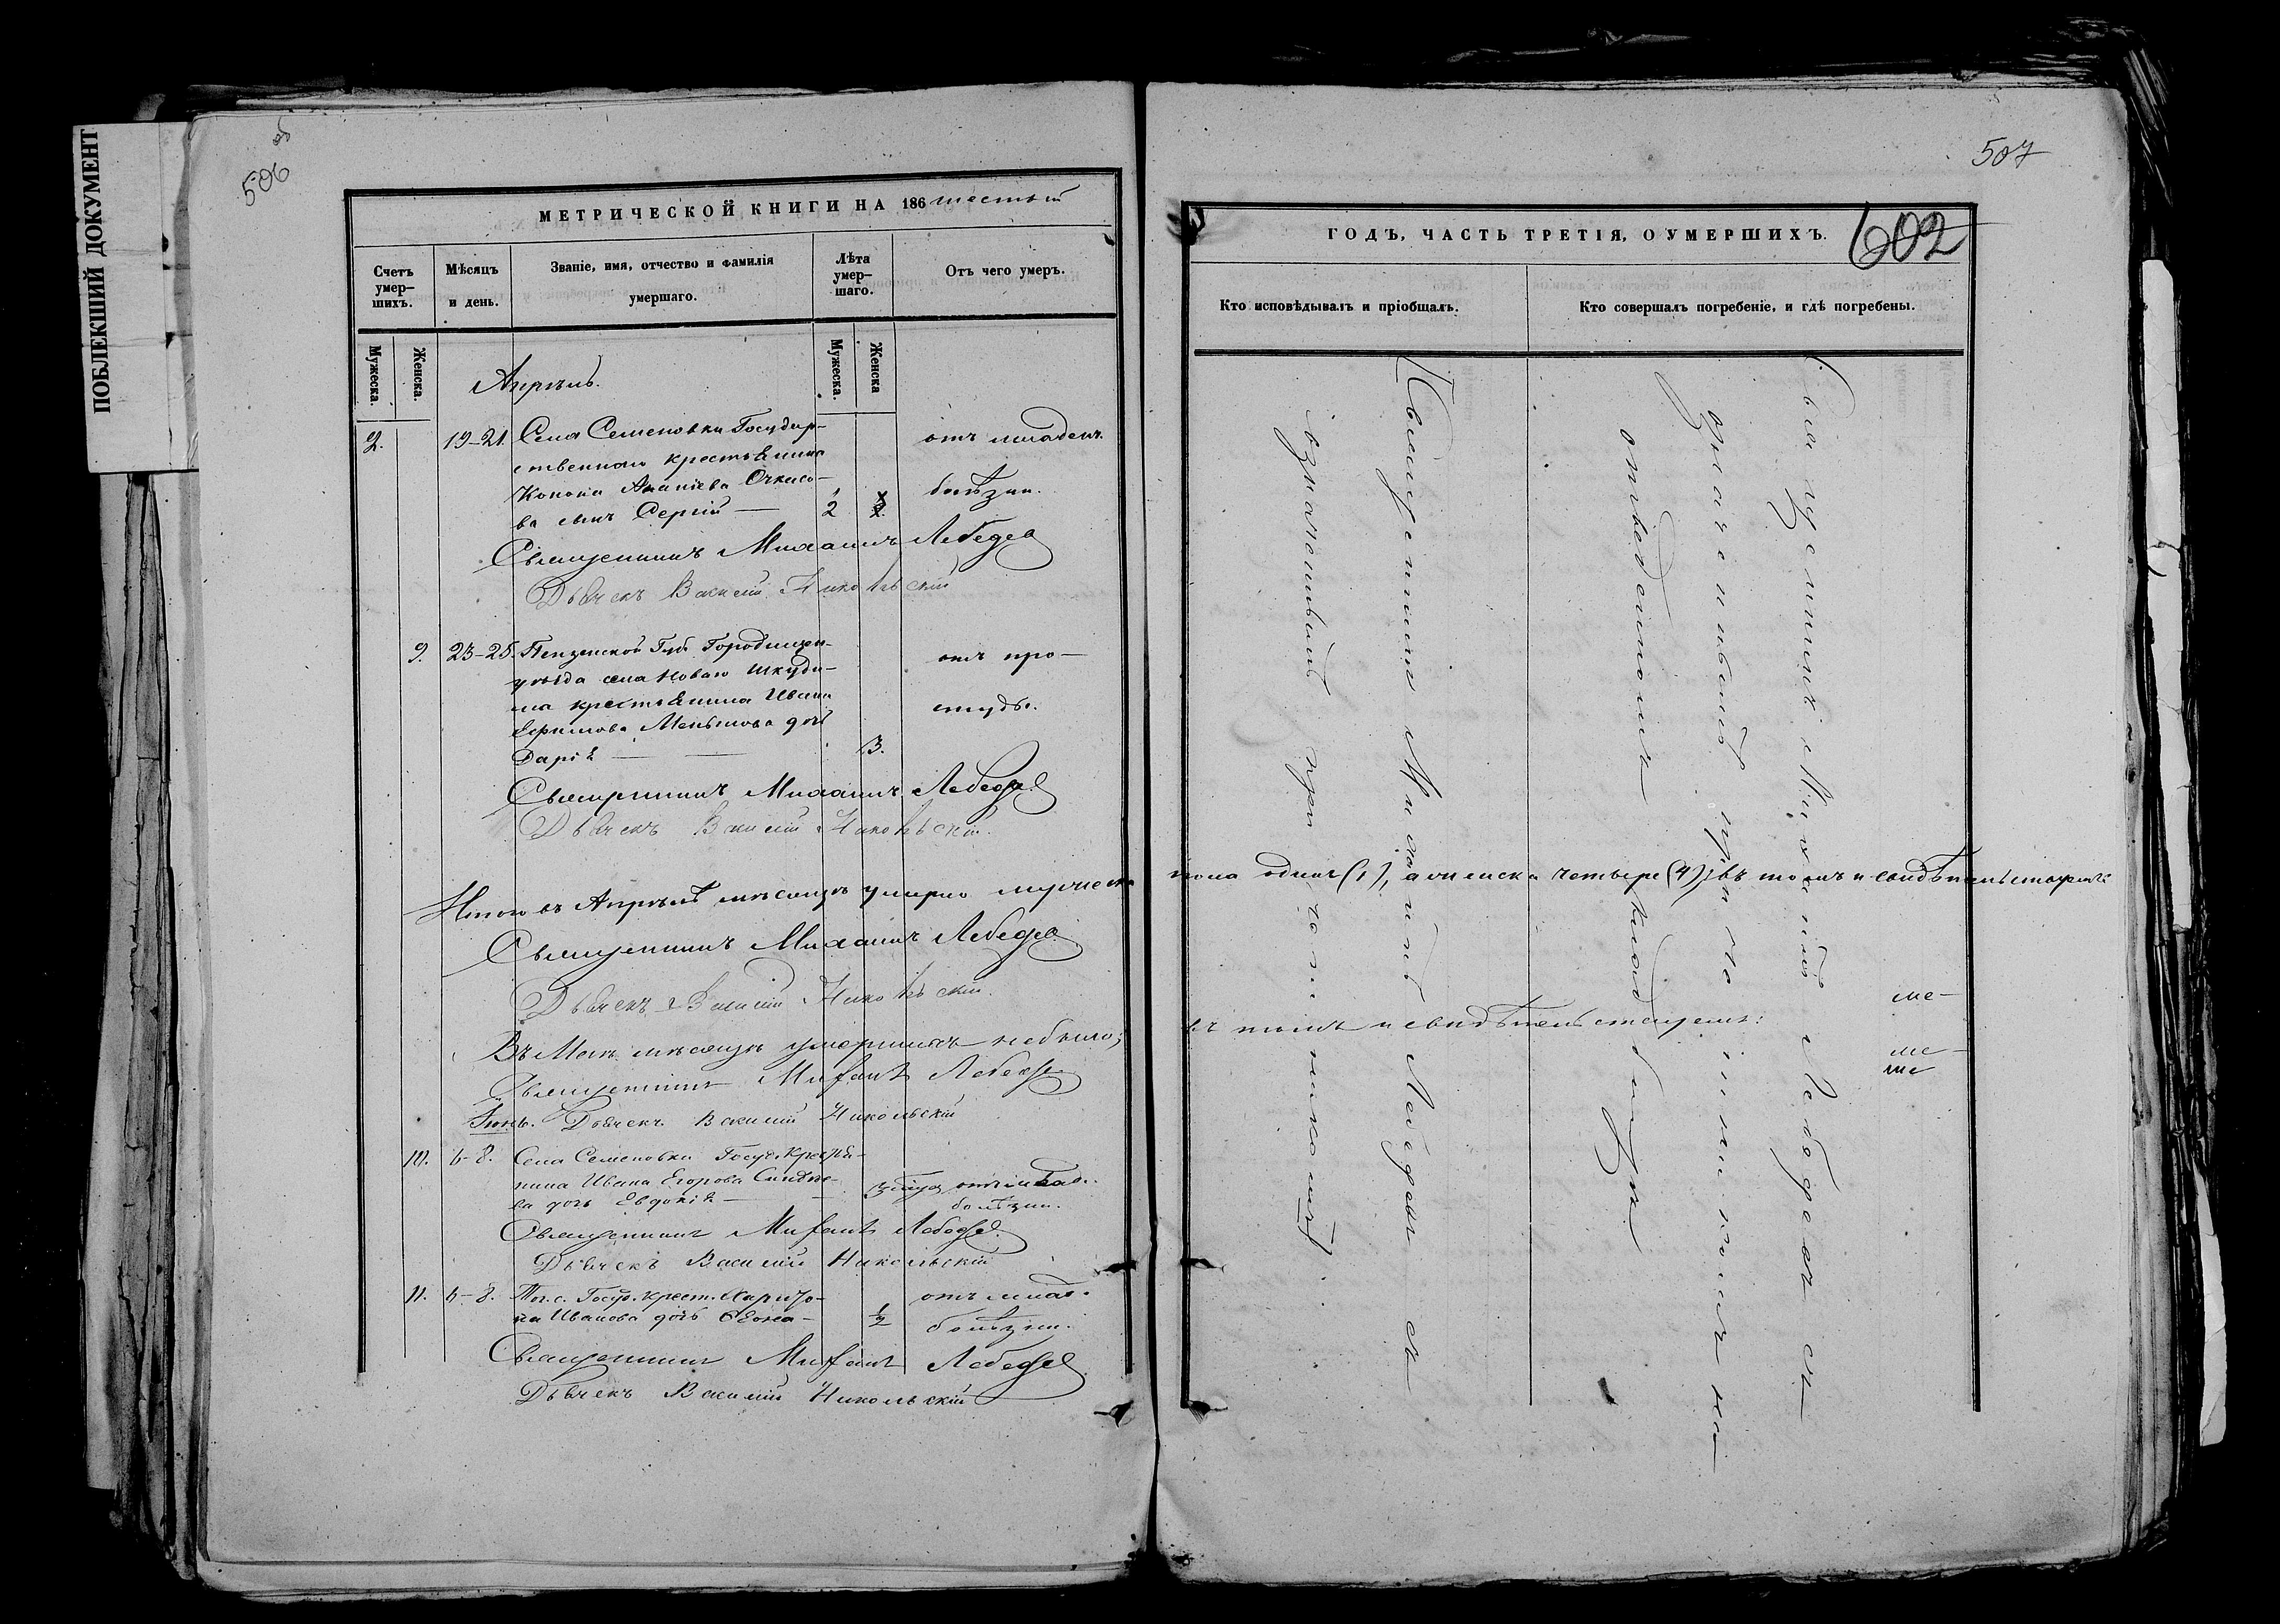 ПОБЛЕКШИЙ ДОКУМЕНТ
506
об
МЕТРИЧЕСКОЙ КНИГИ НА 186 шестый
Счетъ умер-шихъ.
Мѣсяцъ и день.
Званіе, имя, отчество и фамилія умершаго.
Лѣта умер-шаго.
Отъ чего умеръ.
Мужеска.
Женска.
Мужеска.
Женска
Апрѣль.
2. 19-21. Села Семеновки Государ-
ственнаго крестьянина
Конона Ананіева Очкасо-
ва сынъ Сергій — 2
отъ младен.
болѣзни.
Священникъ Михаилъ Лебедев
Дьячекъ Василій Никольскій
9. 23-25. Пензенской Губ. Городищен.
уѣзда села Новаго Шкуди-
ма крестьянина Ивана
Ефимова Меньшова дочь
Дарія — 3.
отъ про-
студы.
Священникъ Михаилъ Лебедев
Дьячекъ Василій Никольскій.
Итого въ Апрѣлѣ мѣсяцѣ умерло мужеска
Священникъ Михаилъ Лебедев
Дьячекъ Василій Никольскій.
Въ Маѣ мѣсяцѣ умершихъ не было;
Священникъ Михаилъ Лебедев
Іюнь. Дьячекъ Василій Никольскій
10. 6-8. Села Семеновки Госуд. Крестья-
нина Ивана Егорова
ва дочь Евдокія —
отъ млад.
болѣзни.
Священникъ Михаилъ Лебедев
Дьячекъ Василій Никольскій
11. 6-8. Тог. с. Госуд. крест. Харито-
на Иванова дочь — ½
отъ млад.
болѣзни.
Священникъ Михаилъ Лебедев
Дьячекъ Василій Никольскій
507
602
ГОДЪ, ЧАСТЬ ТРЕТІЯ, О УМЕРШИХЪ.
Кто исповѣдывалъ и пріобщалъ.
Кто совершалъ погребеніе, и гдѣ погребены.
Священникъ Михаилъ Лебедевъ съ
означеннымъ причетникомъ
Священникъ Михаилъ Лебедевъ съ
означеннымъ причетникомъ на
отведенномъ кладбищѣ
пола одинъ (1), а женска четыре (4); въ томъ и свидѣтельствуемъ:
въ томъ и свидѣтельствуемъ: